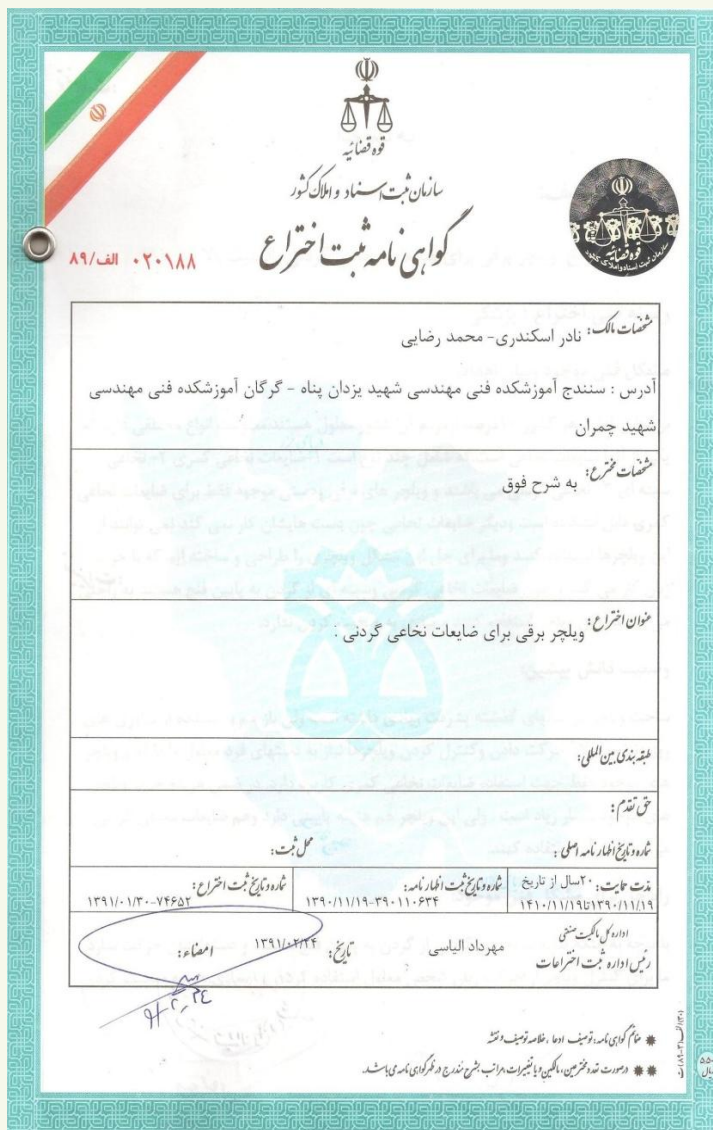 قوه قضائیه
سازمان ثبت اسناد و املاک کشور
گواهی نامه ثبت اختراع
۰۲۰۱۸۸ الف/۸۹
قوه قضائیه
سازمان ثبت اسناد و املاک کشور
مشخصات مالک: نادر اسکندری- محمد رضایی
آدرس : سنندج آموزشکده فنی مهندسی شهید یزدان پناه - گرگان آموزشکده فنی مهندسی
شهید چمران
مشخصات مخترع: به شرح فوق
عنوان اختراع: ویلچر برقی برای ضایعات نخاعی گردنی .
طبقه بندی بین المللی:
حق تقدم:
شماره و تاریخ اظهارنامه اصلی : محل ثبت:
مدت حمایت: ۲۰سال از تاریخ شماره و تاریخ ثبت اظهارنامه: شماره و تاریخ ثبت اختراع:
۱۳۹۰/۱۱/۱۹تا۱۴۱۰/۱۱/۱۹ ۱۳۹۰/۱۱/۱۹-۳۹۰۱۱۰۶۳۴ ۱۳۹۱/۰۱/۳۰-۷۴۶۵۲
اداره کل مالکیت صنعتی
رئیس اداره ثبت اختراعات مهرداد الیاسی تاریخ: ۱۳۹۱/۰۲/۲۴ امضاء:
ضمائم گواهی نامه: توصیف ، ادعا ، خلاصه توصیف و نقشه
درصورت تعدد مخترعین، مالکین و یا تغییرات، مراتب بشرح مندرج در ظهر گواهی نامه می باشد.